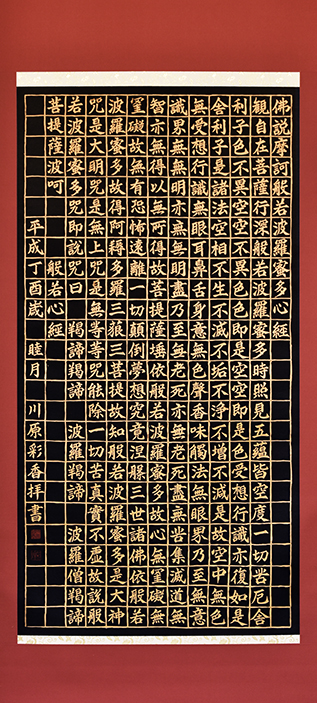 佛説摩訶般若波羅蜜多心經
觀自在菩薩行深般若波羅蜜多時照見五蘊皆空度一切苦厄舍
利子色不異空空不異色色即是空空即是色受想行識亦復如是
舍利子是諸法空相不生不滅不垢不淨不增不減是故空中無色
無受想行識無眼耳鼻舌身意無色聲香味觸法無眼界乃至無意
識界無無明亦無無明盡乃至無老死亦無老死盡無苦集滅道無
智亦無得以無所得故菩提薩埵依般若波羅蜜多故心無罣礙無
罣礙故無有恐怖遠離一切顛倒夢想究竟涅槃三世諸佛依般若
波羅蜜多故得阿耨多羅三藐三菩提故知般若波羅蜜多是大神
咒是大明咒是無上咒是無等等咒能除一切苦真實不虚故説般
若波羅蜜多咒即説咒曰 羯諦羯諦 波羅羯諦 波羅僧羯諦
菩提薩波呵 般若心經
平成丁酉歳 睦月 川原彩香拝書